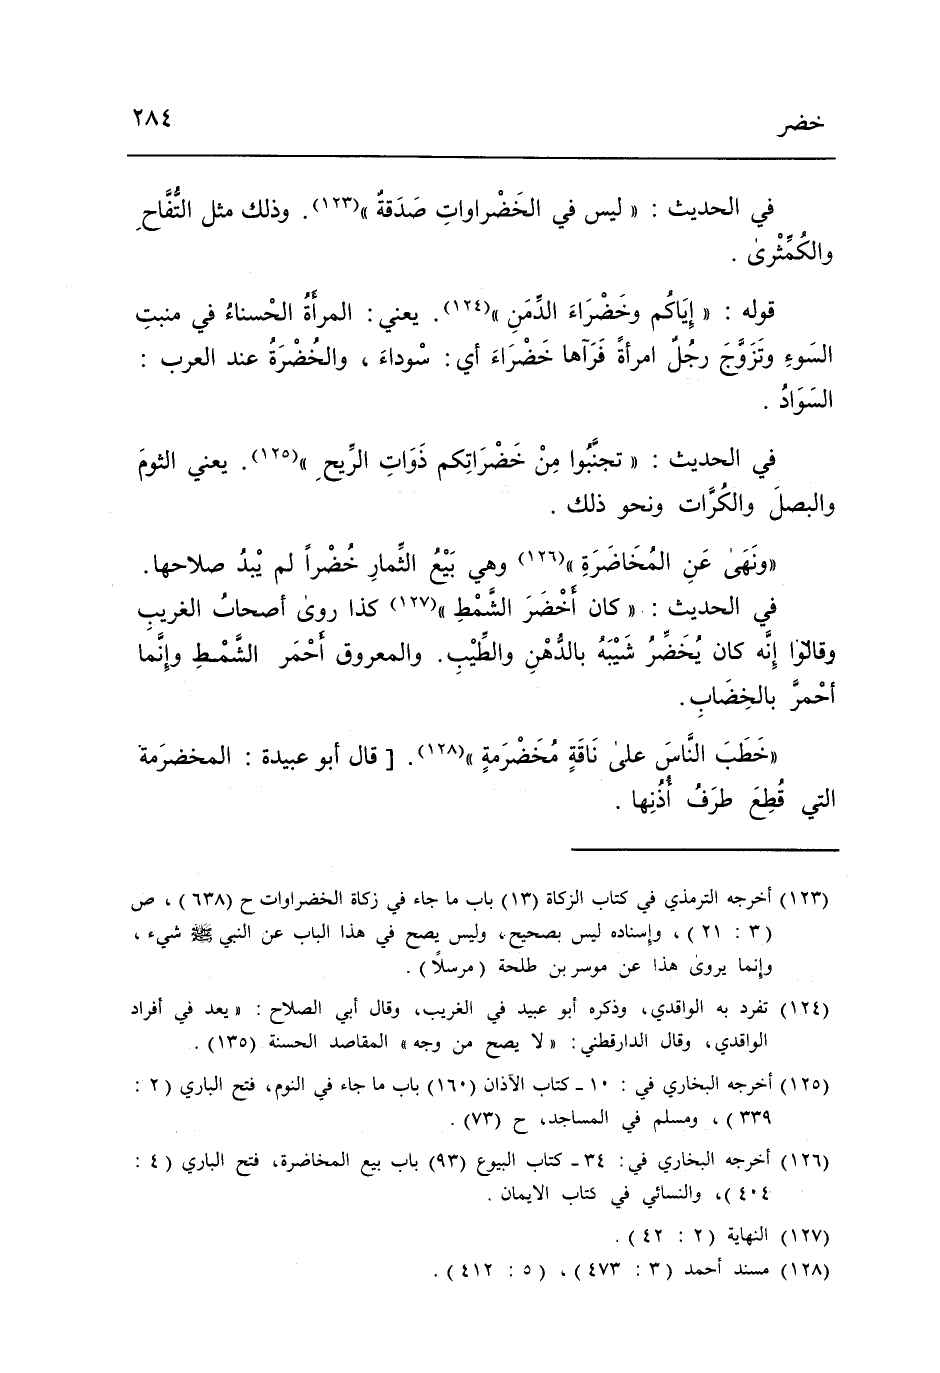 خضر ٢٨٤
في الحديث : « ليس في الخَضْراواتِ صَدَقةٌ »(١٢٣). وذلك مثل التُّفَّاحِ
والكُمِّثْرىٰ .
قوله : « إيَاكُم وخَضْرَاءَ الدِّمَنِ »(١٢٤). يعني: المرأَةُ الحْسناءُ في منبتِ
السَوءِ وتَزَوَّجَ رجُلٌ امرأةً فَرَآها خَضْرَاءَ أي: سْوداءَ ، والخُضْرَةُ عند العرب :
السَوَادُ .
في الحديث : « تجنَّبُوا مِنْ خَضْرَاتِكم ذَوَات الرِّيحِ »(١٢٥). يعني الثومَ
والبصلَ والكُرَّات ونحو ذلك .
«ونَهَىٰ عَنِ المُخَاضَرَةِ »(١٢٦) وهي بَيْعُ الثِّمارِ خُضْراً لم يْبدُ صلاحها.
في الحديث : « كان أَخْضَرَ الشَّمْطِ »(١٢٧) كذا روىٰ أصحابُ الغريبِ
وقالوا إنَّه كان يُخَضِّرُ شَيْبَهُ بالدُّهْنِ والطِّيْبِ. والمعروق أَحْمَر الشَّمْطِ وإنَّما
أحْمرَّ بالخِضَابِ.
«خَطَبَ النَّاسَ علىٰ نَاقَةٍ مُخَضْرَمةٍ »(١٢٨). [ قال أبو عبيدة : المخضرَمة
التي قُطِعَ طرَفُ أُذُنِها .
(١٢٣) أخرجه الترمذي في كتاب الزكاة (١٣) باب ما جاء في زكاة الخضراوات ح (٦٣٨) ، ص
(٣ : ٢١) ، وإسناده ليس بصحيح، وليس يصح في هذا الباب عن النبي ﷺ شيء ،
وإنما يروىٰ هذا عن موسر بن طلحة ( مرسلاً) .
(١٢٤) تفرد به الواقدي، وذكره أبو عبيد في الغريب، وقال أبي الصلاح : « يعد في أفراد
الواقدي، وقال الدارقطني: « لا يصح من وجه» المقاصد الحسنة (١٣٥) .
(١٢٥) أخرجه البخاري في : ١٠ ـ كتاب الآذان (١٦٠) باب ما جاء في النوم، فتح الباري (٢ :
٣٣٩ ) ، ومسلم في المساجد، ح (٧٣) .
(١٢٦) أخرجه البخاري في: ٣٤ ـ كتاب البيوع (٩٣) باب بيع المخاضرة، فتح الباري (٤ :
٤٠٤ )، والنسائي في كتاب الايمان .
(١٢٧) النهاية (٢ : ٤٢) .
(١٢٨) مسند أحمد (٣ : ٤٧٣) ، (٥ : ٤١٢) .